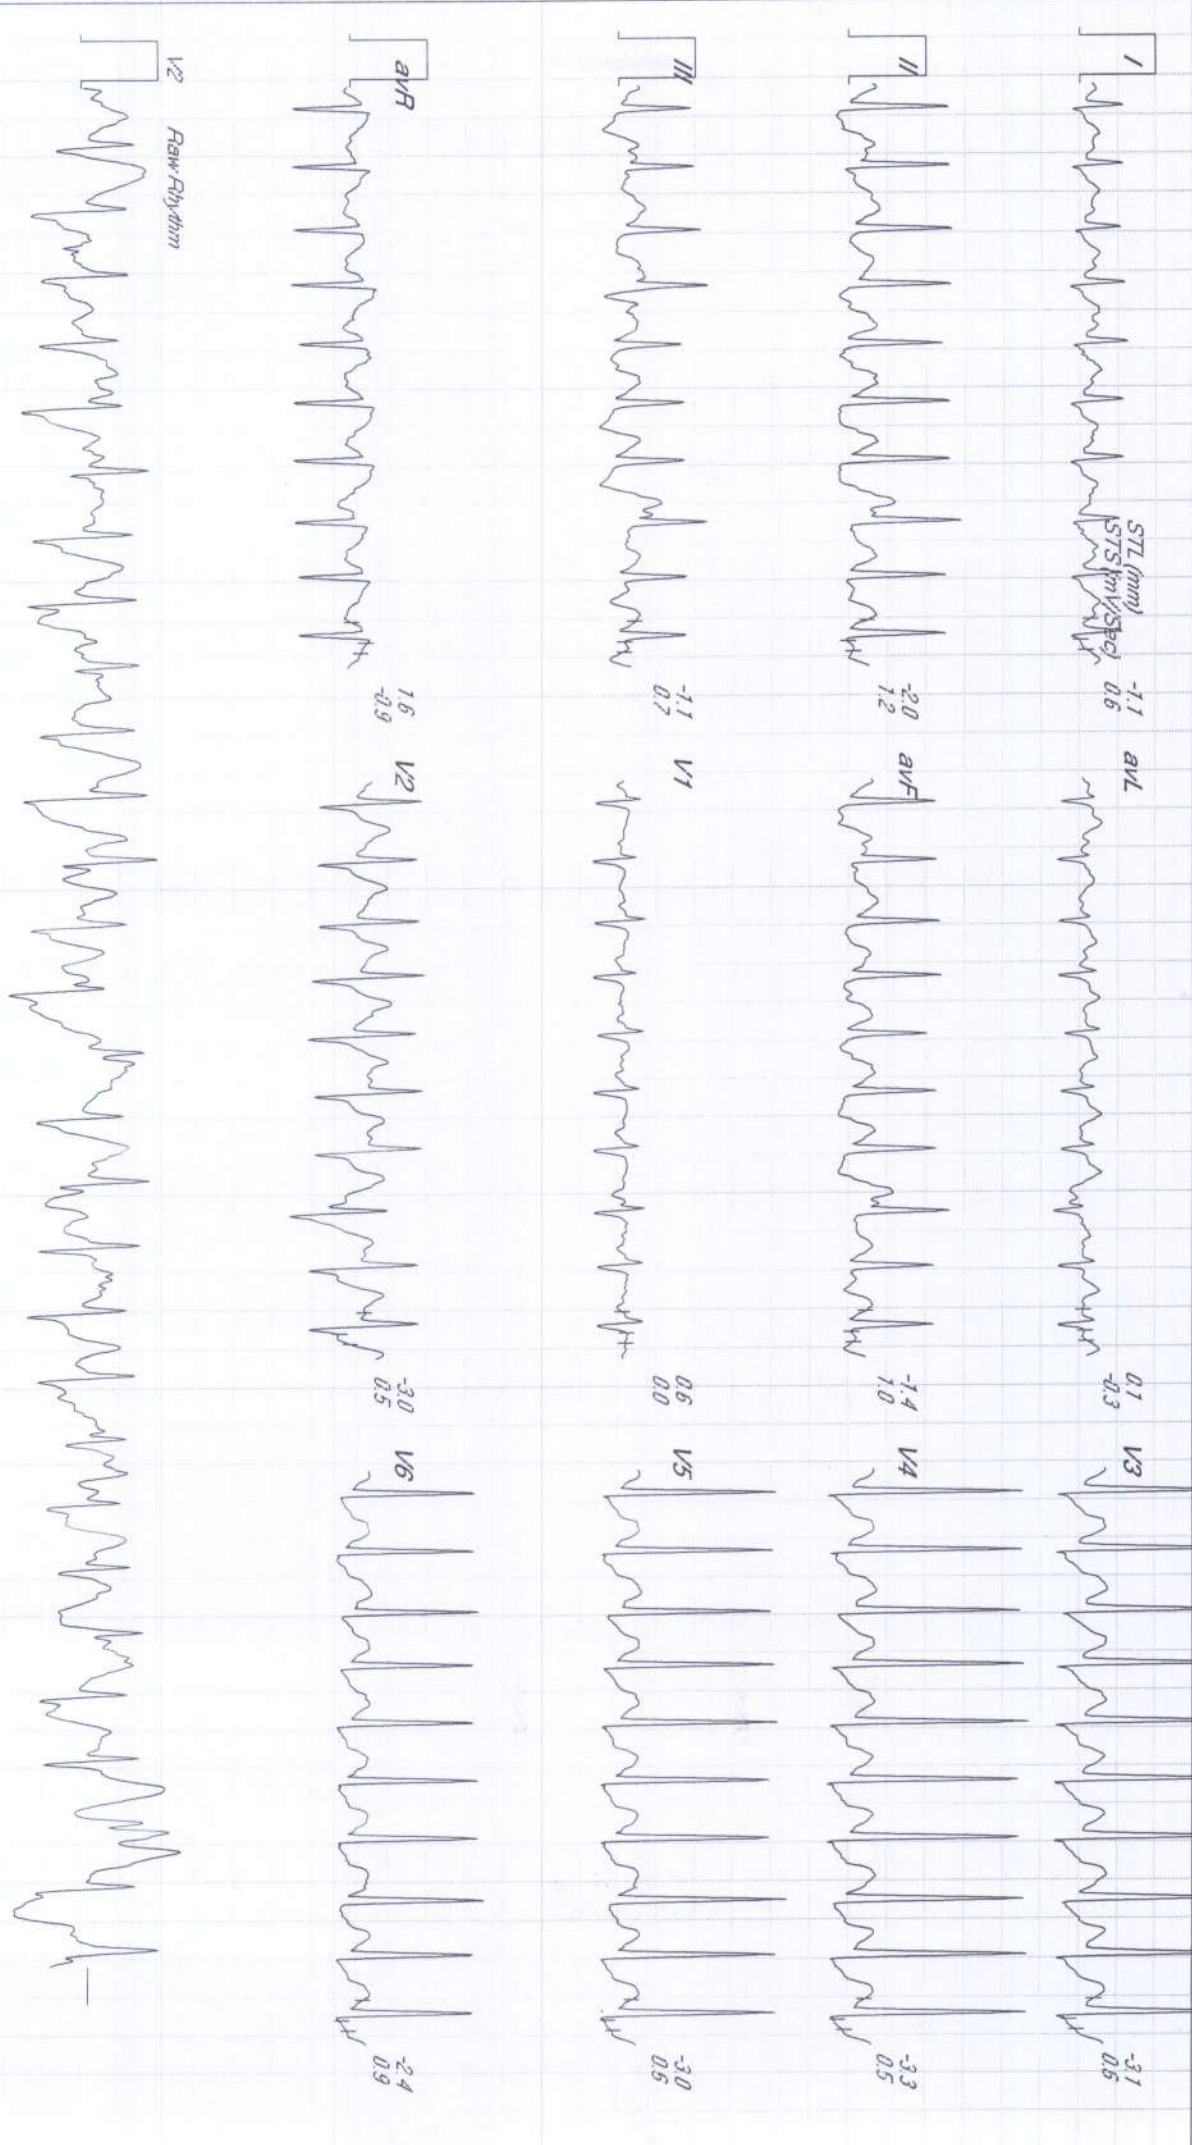 I
STL (mm) -1.1
STS (mV/Sec) 0.6
avL
0.1
-0.3
V3
-3.1
0.6
II
-2.0
1.2
avF
-1.4
1.0
V4
-3.3
0.5
III
-1.1
0.7
V1
0.6
0.0
V5
-3.0
0.6
avR
1.6
-0.9
V2
-3.0
0.5
V6
-2.4
0.9
V2 Raw Rhythm